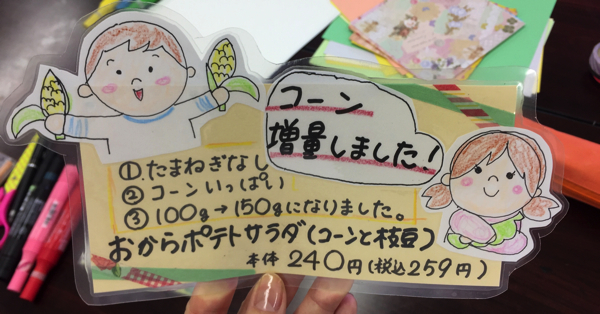 コーン
増量しました!
①たまねぎなし
②コーンいっぱい
③100g→150gになりました。
おからポテトサラダ(コーンと枝豆)
本体 240円(税込259円)